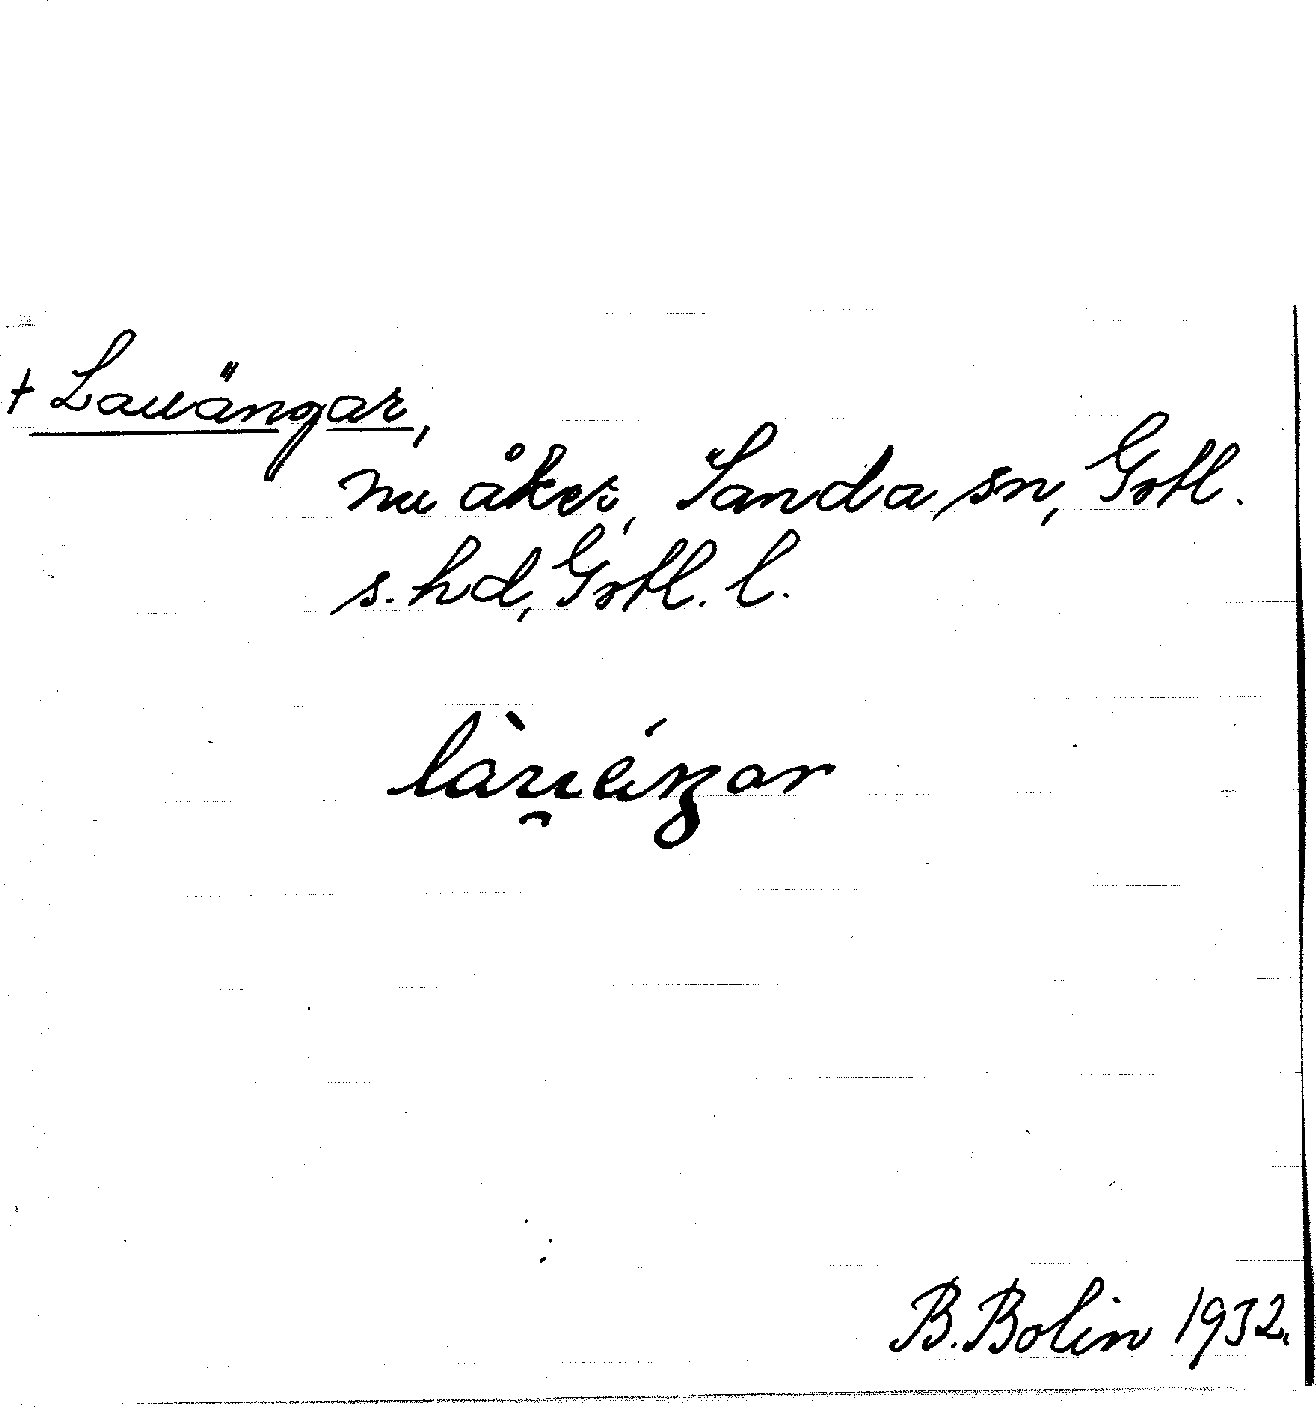 + Lauängar,
nu åker, Sanda sn, Gotl.
s. hd, Gotl. l.
B. Bolin 1932.